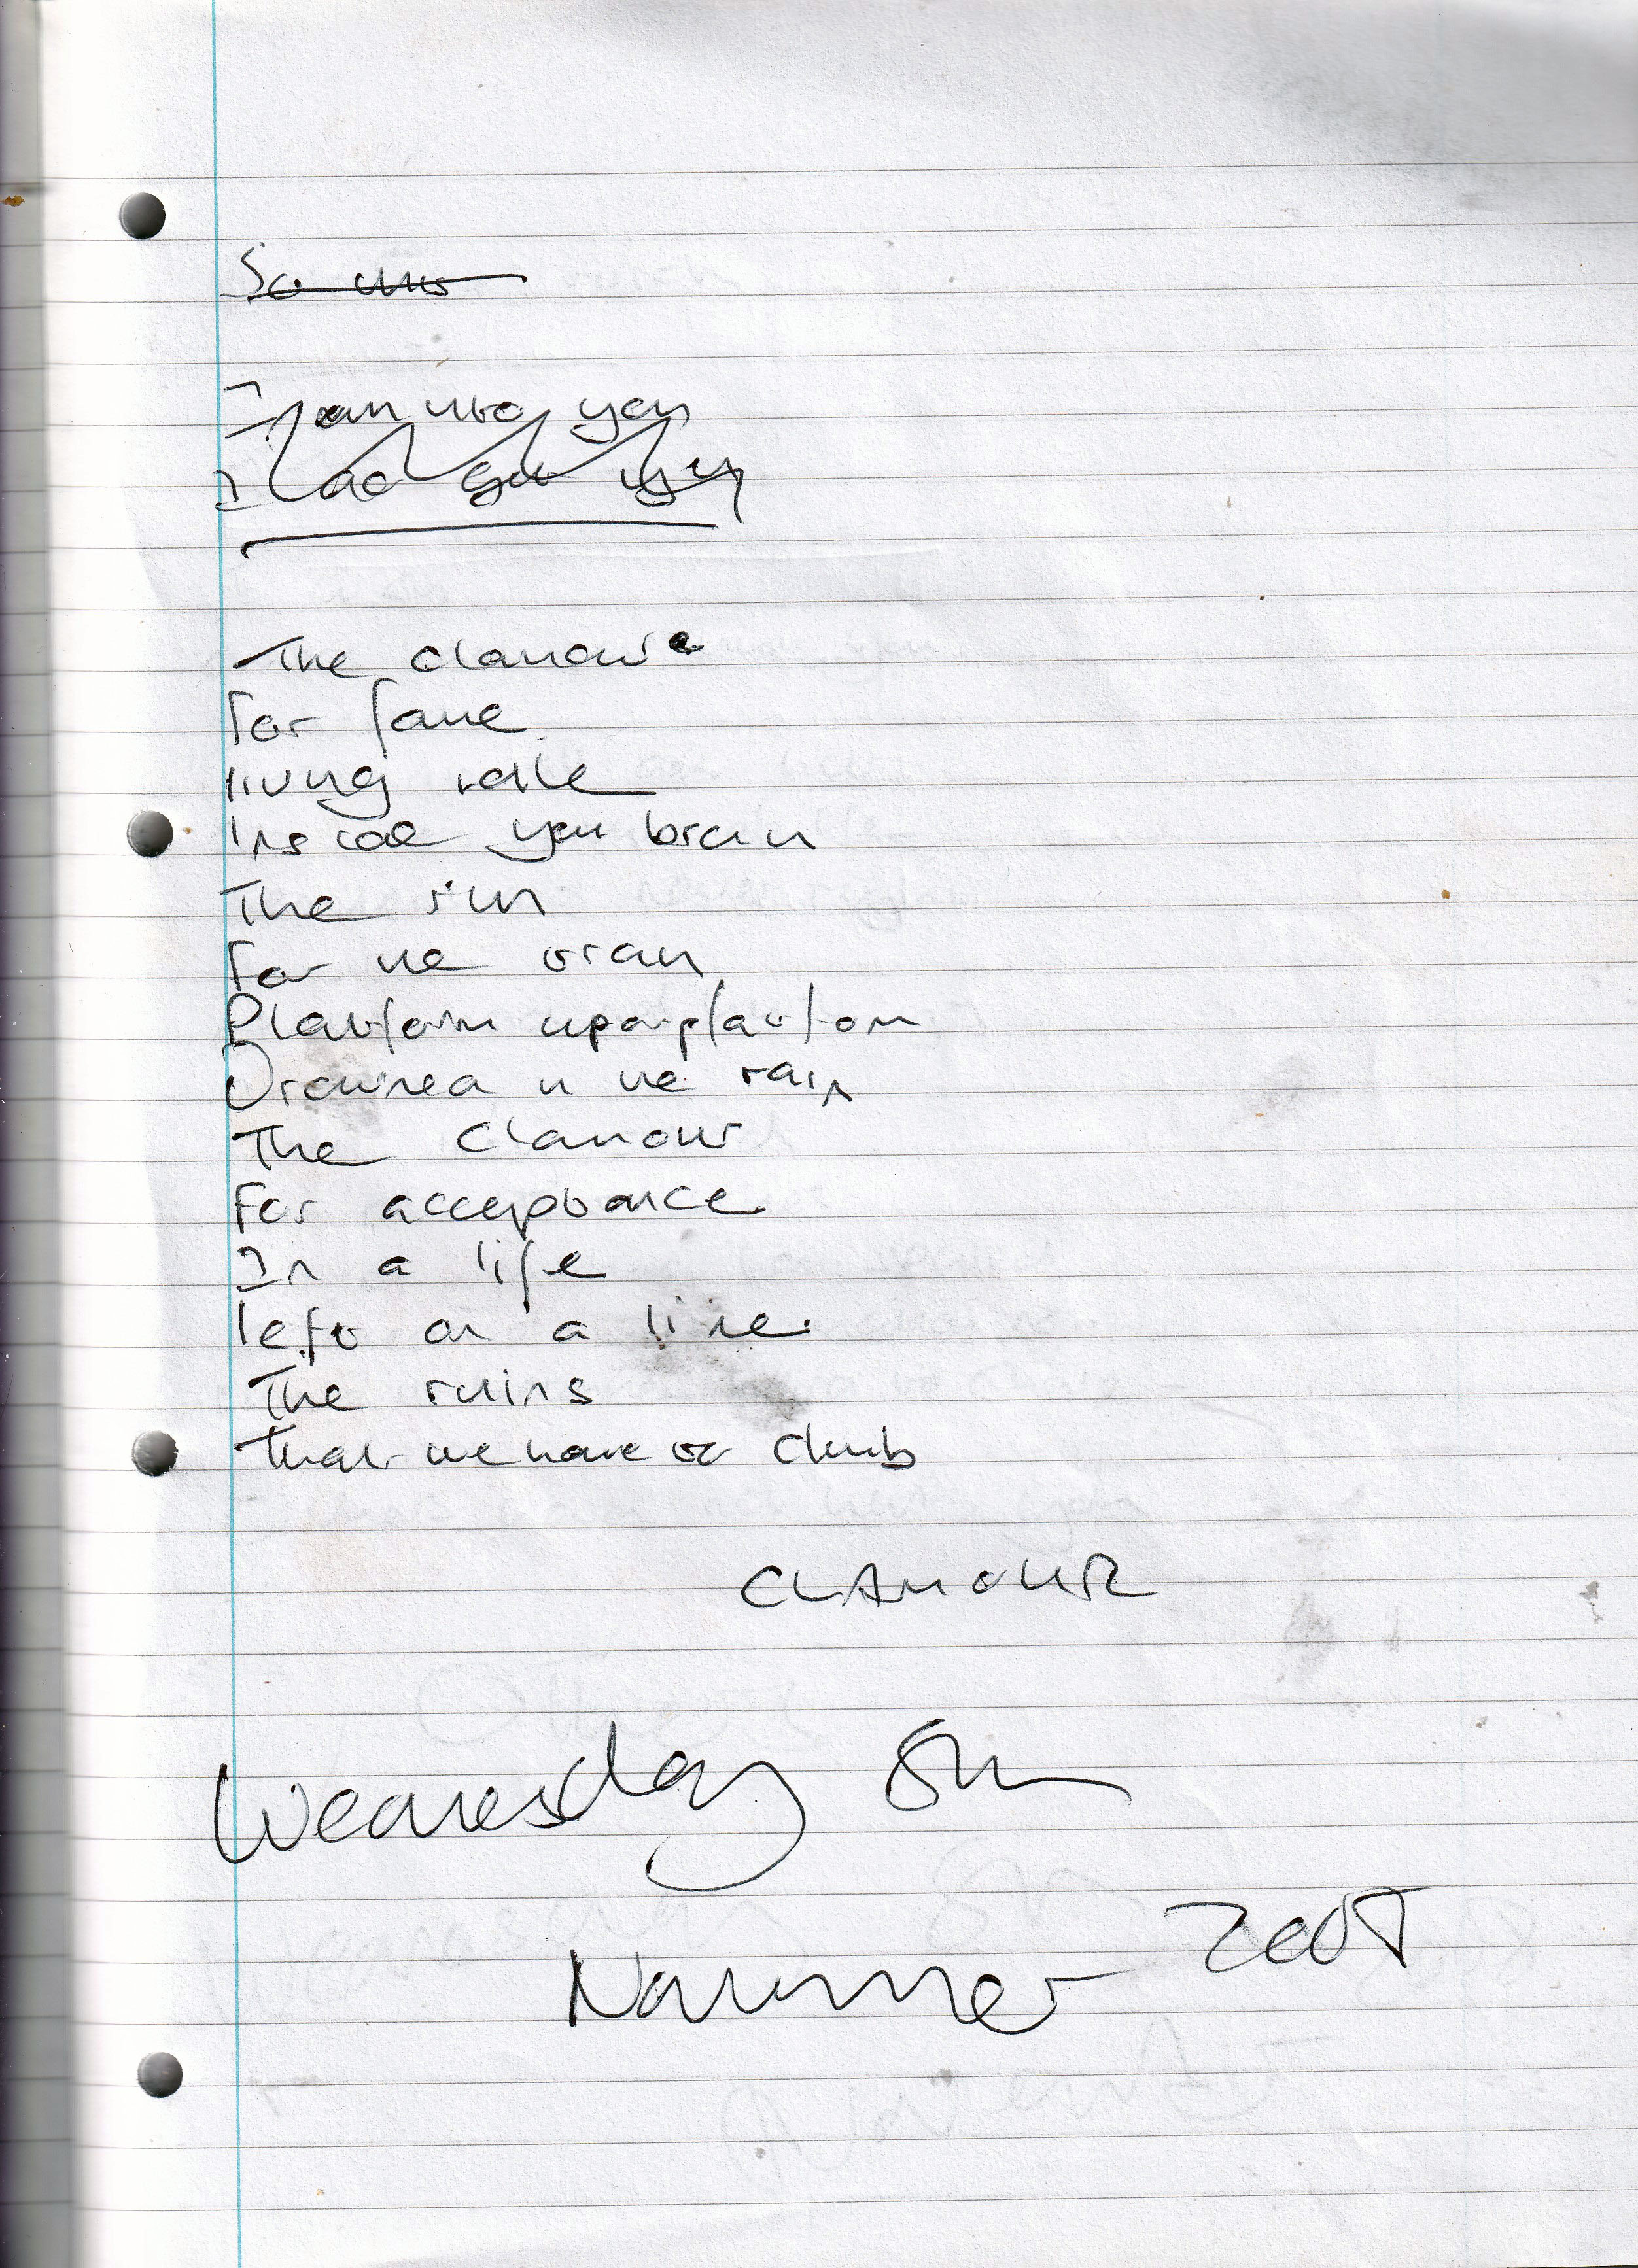 The clamour
For fame
living
Inside your brain
The run
For the train
Platform upon platform
Drowned in the rain
The clamour
For acceptance
In a life
left on a line.
The ruins
that we have to climb
CLAMOUR
Wednesday 8th
November 2007